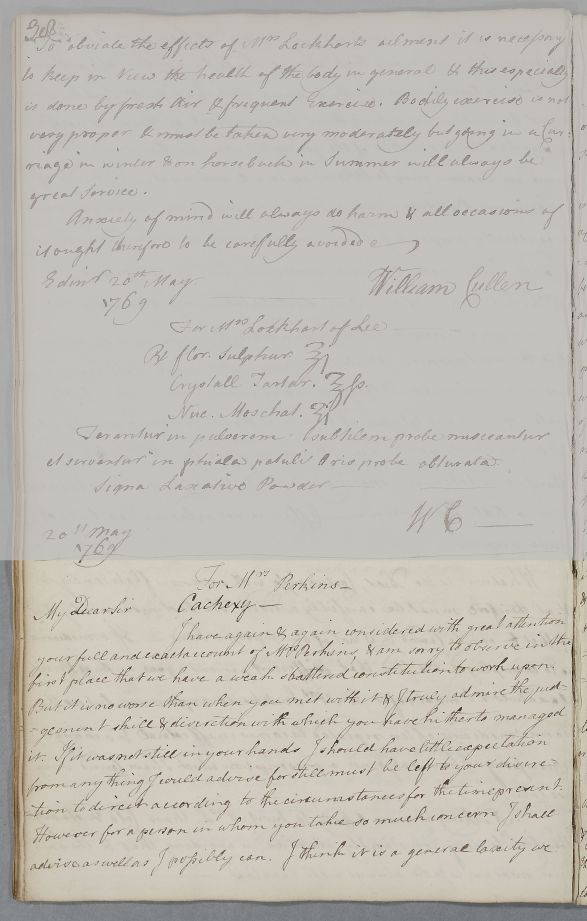 308
To obviate the effects of Mrs Lockharts ailment it is necessary
to keep in View the health of the body in general & this especially
is done by fresh Air & frequent Exercise. Bodily exercise is not
very proper & must be taken very moderately but going in a Car-
riage in winter & on horseback in Summer will always be
great Service.
Anxiety of mind will always do harm & all occasions of
it ought therefore to be carefully avoided
Edinr 20th May
1769
William Cullen
For Mrs Lockhart of Lee
Rx flor. Sulphur. ʒj
Crystall Tartar. ʒſs.
Nuc. Moschat.
Terantur in pulverem subtilem probe misceantur
et serventur in phiala patuli Oris probe obturata
Signa Laxative Powder
20th May
1769
WC
For Mrs Perkins
My Dear Sir Cachexy
I have again & again considered with great attention
your full and exact account of Mrs Perkins, & am sorry to observe in the
first place that we have a weak shattered constitution to work upon
But it is no worse than when you met with it & I truly admire the jud-
-gement skill & discretion with which you have hitherto managed
it. If it was not still in your hands I should have little expectation
from any thing I could advise for still must be left to your discre-
-tion to direct according to the circumstances for the time present.
However for a person in whom you take so much concern I shall
advise as well as I possibly can. I think it is a general laxity we